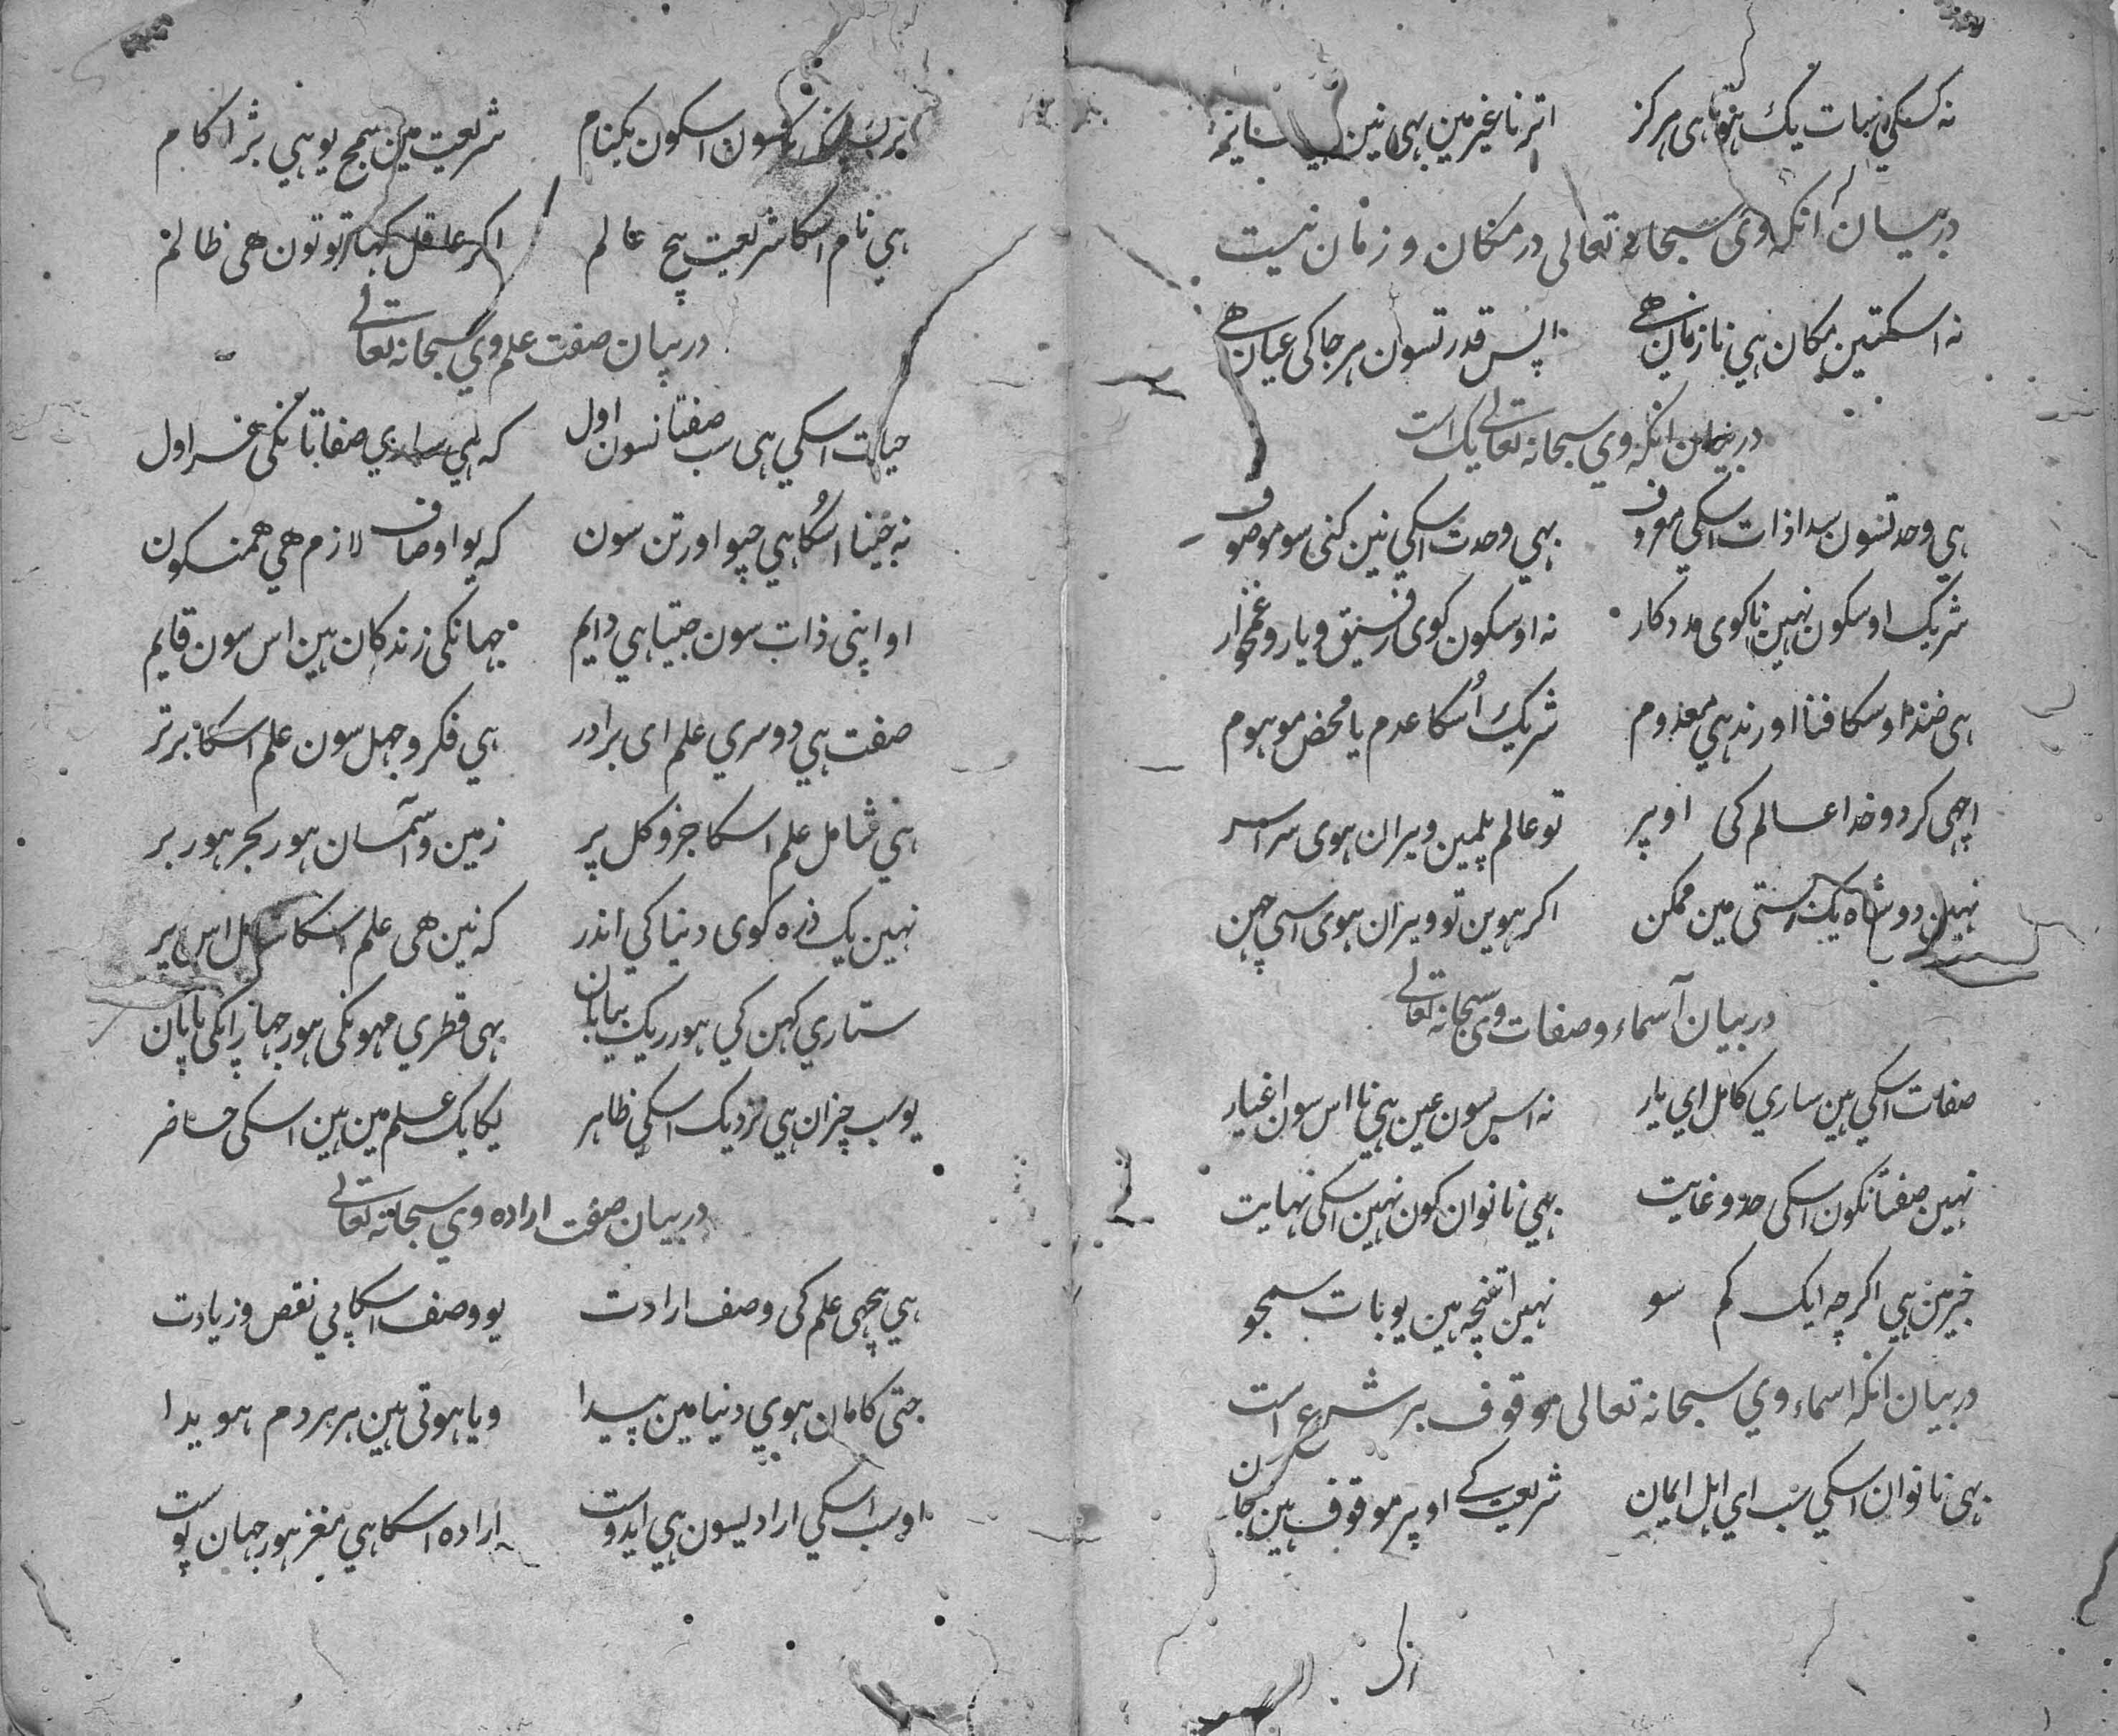 نہ کسکی نہات یک ہوتا ہی ہرگز اثر نا غیر مین بہی نین
در بیان آنکہ وی سبحانہ تعالی در مکان و زمان نیست
نہ اسکتین مکان ہی نا زمان ہے اپس قدرتسون ہر جا کی عیان ہے
در بیان انکہ وی سبحانہ تعالی یک است
ہی وحدتسون سدا ذات اسکی معروف بہی وحدت اسکی نین کنی سو موصوف
شریک اوسکون نہین نا کوی مددکار نہ اوسکون کوی رفیق و یار و غمخوار
ہی ضد اوسکا فنا اور ند ہی معدوم شریک اُسکا عدم یا محض موہوم
اچھی کر دو خدا عالم کی اوپر تو عالم پلمین ویران ہوی سراسر
نہین دو شاہ یک بستی مین ممکن اکر ہوین تو ویران ہوی اسی چہن
در بیان آسماء و صفات وی سبحانہ تعالی
صفات اسکی ہین ساری کامل ای یار نہ اس سون عین ہی نا اس سون اغیار
نہین صفتانکون اسکی حد و غایت بہی نانوان کون نہین اسکی نہایت
خبر مین ہی اکرچہ ایک کم سو نہین اتنیچہ ہین یو بات سمجو
در بیان انکہ اسماء وی سبحانہ تعالی موقوف بر شرع است
بہی نانوان اسکی سب ای اہل ایمان شریعت کے اوپر موقوف ہین جان
اسکون یکنام شریعت مین سمج یو ہی بڑا کام
ہی نام اسکا شریعت بیچ عالم اکر عاقل کہا تو تون ھی ظالم
در بیان صفت علم وی سبحانہ تعالی
حیات اسکی ہی سب صفتانسون اول کہ ہی ساری صفاتانکی اول
نہ جینا اسکا ہی جیو اور تن سون کہ یو اوصاف لازم ھی ھمنکون
او اپنی ذات سون جیتا ہی دایم جہانکی زندکان ہین اس سون قایم
صفت ہی دوسری علم ای برادر ہی فکر و جہل سون علم اسکا برتر
ہی شامل علم اسکا جز و کل پر زمین و آسمان ہور بحر ہور بر
نہین یک ذرہ کوی دنیا کی اندر کہ نین ھی علم اسکا شامل اس پر
ستاری کہن کی ہور ریک بیابان بہی قطری مہونکی ہور جہاڑانکی پاپان
یو سب چیزان ہی نزدیک اسکی ظاہر یکایک علم مین ہین اسکی حاضر
در بیان صفت ارادہ وی سبحانہ تعالی
ہی پیچھی علم کی وصف ارادت یو وصف اسکا بی نقص و زیادت
جتی کامان ہوی دنیا مین پیدا ویا ہوتی ہین ہر ہر دم ہویدا
او سب اسکی ارادیسون ہی ایدوست ارادہ اسکا ہی مغز ہور جہان پوست